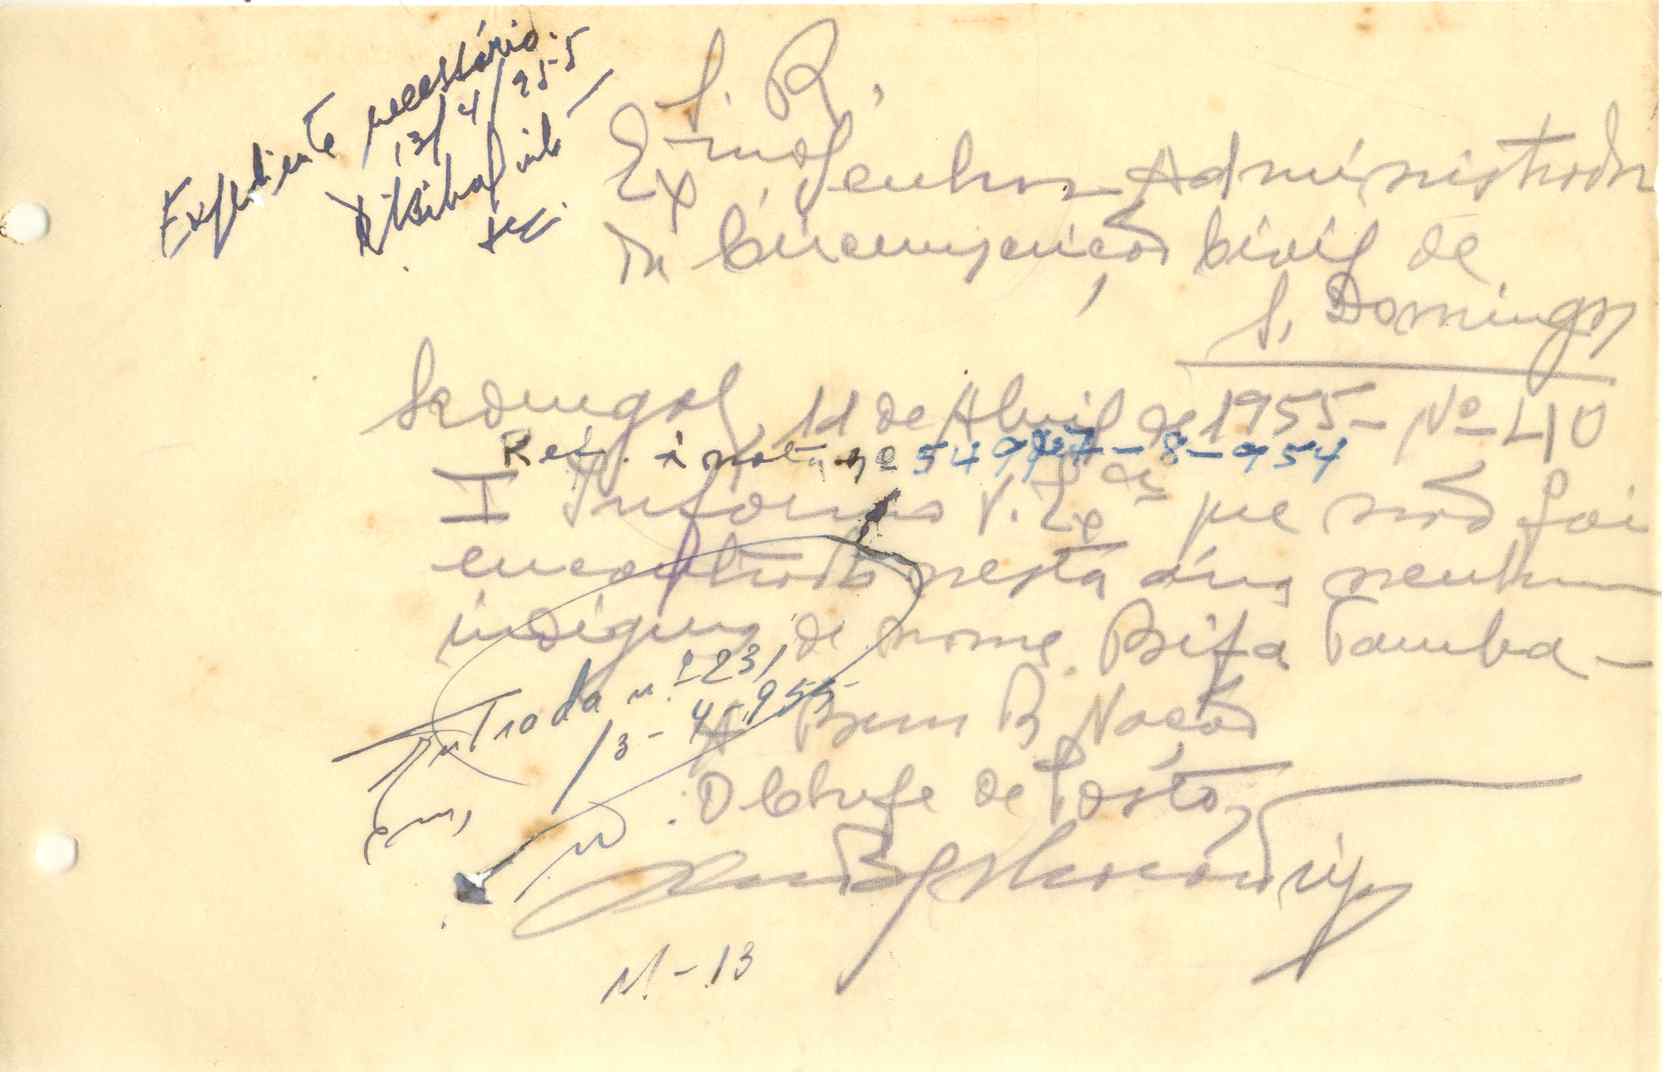 Expediente necessário.
13/4/955
S. R.
Exmo Senhor Administrador
da Circunscrição Civil de
S. Domingos
Sedengal, 11 de Abril de 1955 - Nº 40
Ref. à nota nº 549 7-8-954
I Informo V. Exa que não foi
encontrado nesta área nenhum
indígena de nome Bifa Tamba -
A Bem da Nação
O Chefe de Posto,
Entrada n.º 231
em, 13-4-955
M-13